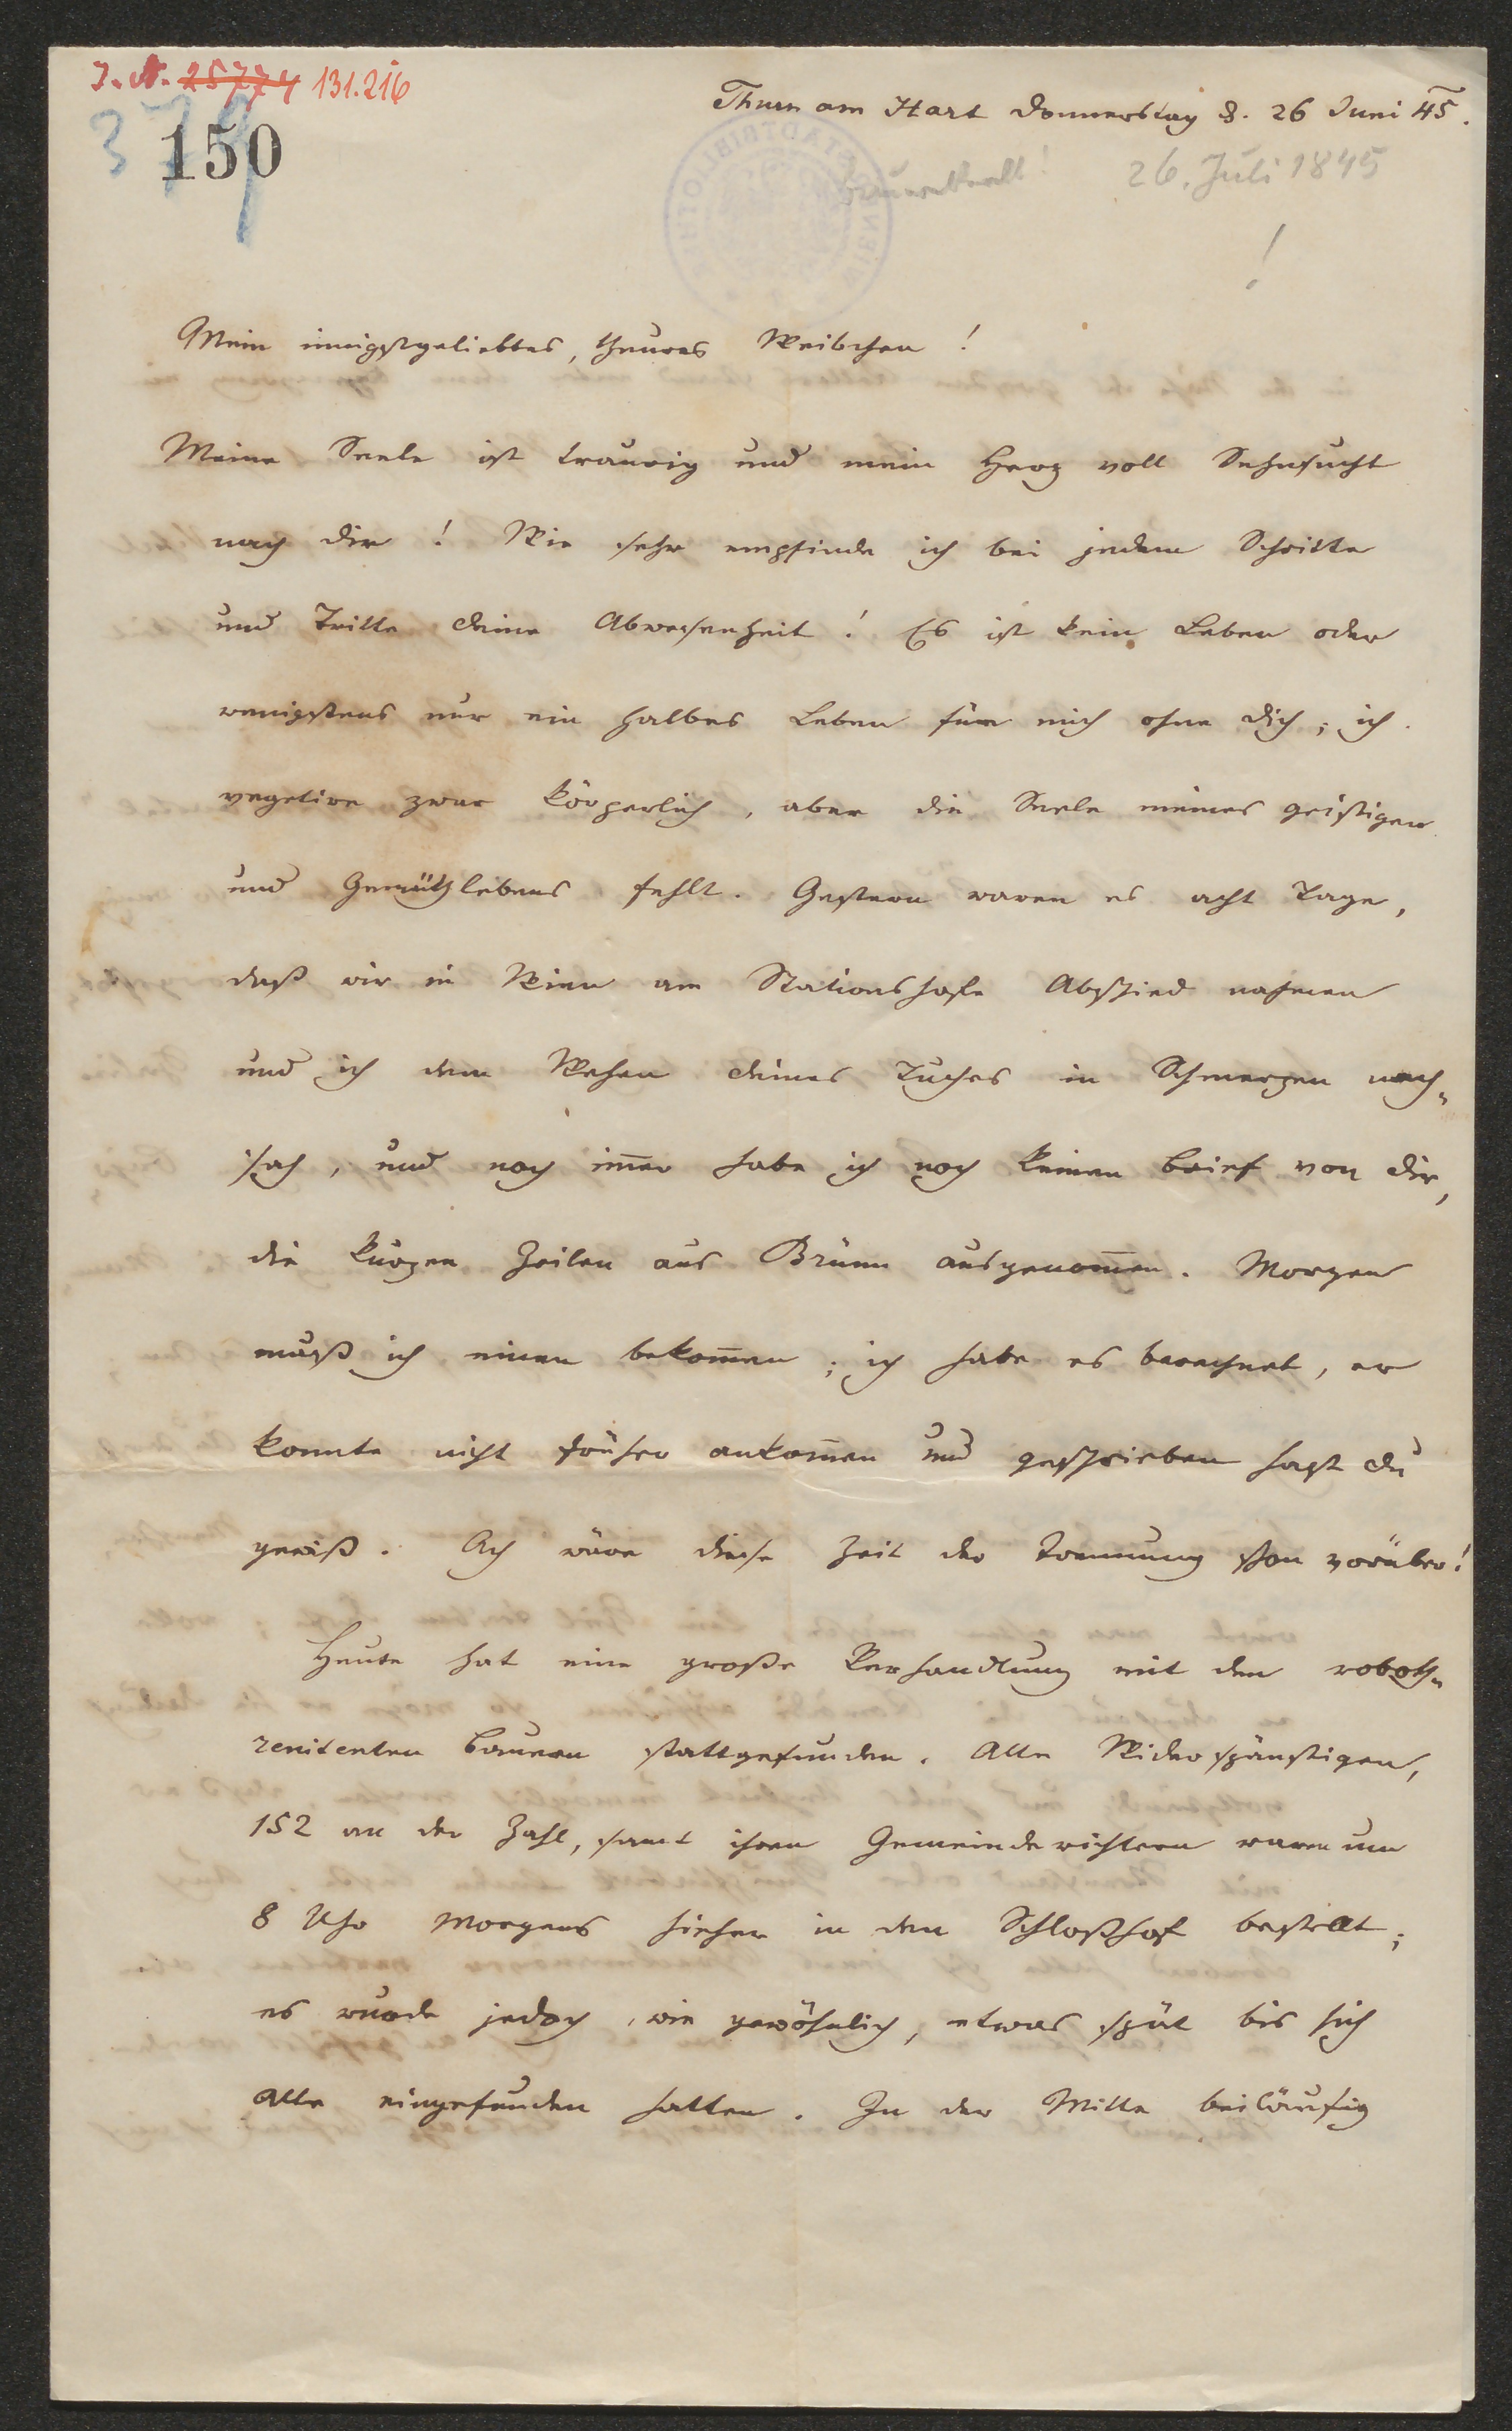 J. N. 25774 131.216
379
150
Thurn am Hart Donnerstag d. 26 Juni 45.
26. Juli 1845
!
Mein innigstgeliebtes, theures Weibchen!
Meine Seele ist traurig und mein Herz voll Sehnsucht
nach dir! Wie sehr empfinde ich bei jedem Schritte
und Tritte deine Abwesenheit! Es ist kein Leben oder
wenigstens nur ein halbes Leben für mich ohne dich; ich
vegetire zwar körperlich, aber die Seele meines geistigen
und Gemüthlebens fehlt. Gestern waren es acht Tage,
daß wir in Wien am Stationshofe Abschied nahmen
und ich dem Wehen deines Tuches in Schmerzen nach-
sah, und noch im̅er habe ich noch keinen Brief von dir,
die kurzen Zeilen aus Brünn ausgenom̅en. Morgen
muß ich einen bekom̅en; ich habe es berechnet, er
konnte nicht früher ankom̅en und geschrieben hast du
gewiß. Ach wäre diese Zeit der Trennung schon vorüber!
Heute hat eine große Verhandlung mit den roboth-
renitenten Bauern stattgefunden. Alle Widerspänstigen,
152 an der Zahl, samt ihren Gemeinderichtern waren um
8 Uhr Morgens hieher in den Schloßhof bestellt;
es wurde jedoch, wie gewöhnlich, etwas spät bis sich
Alle eingefunden hatten. In der Mitte beiläufig